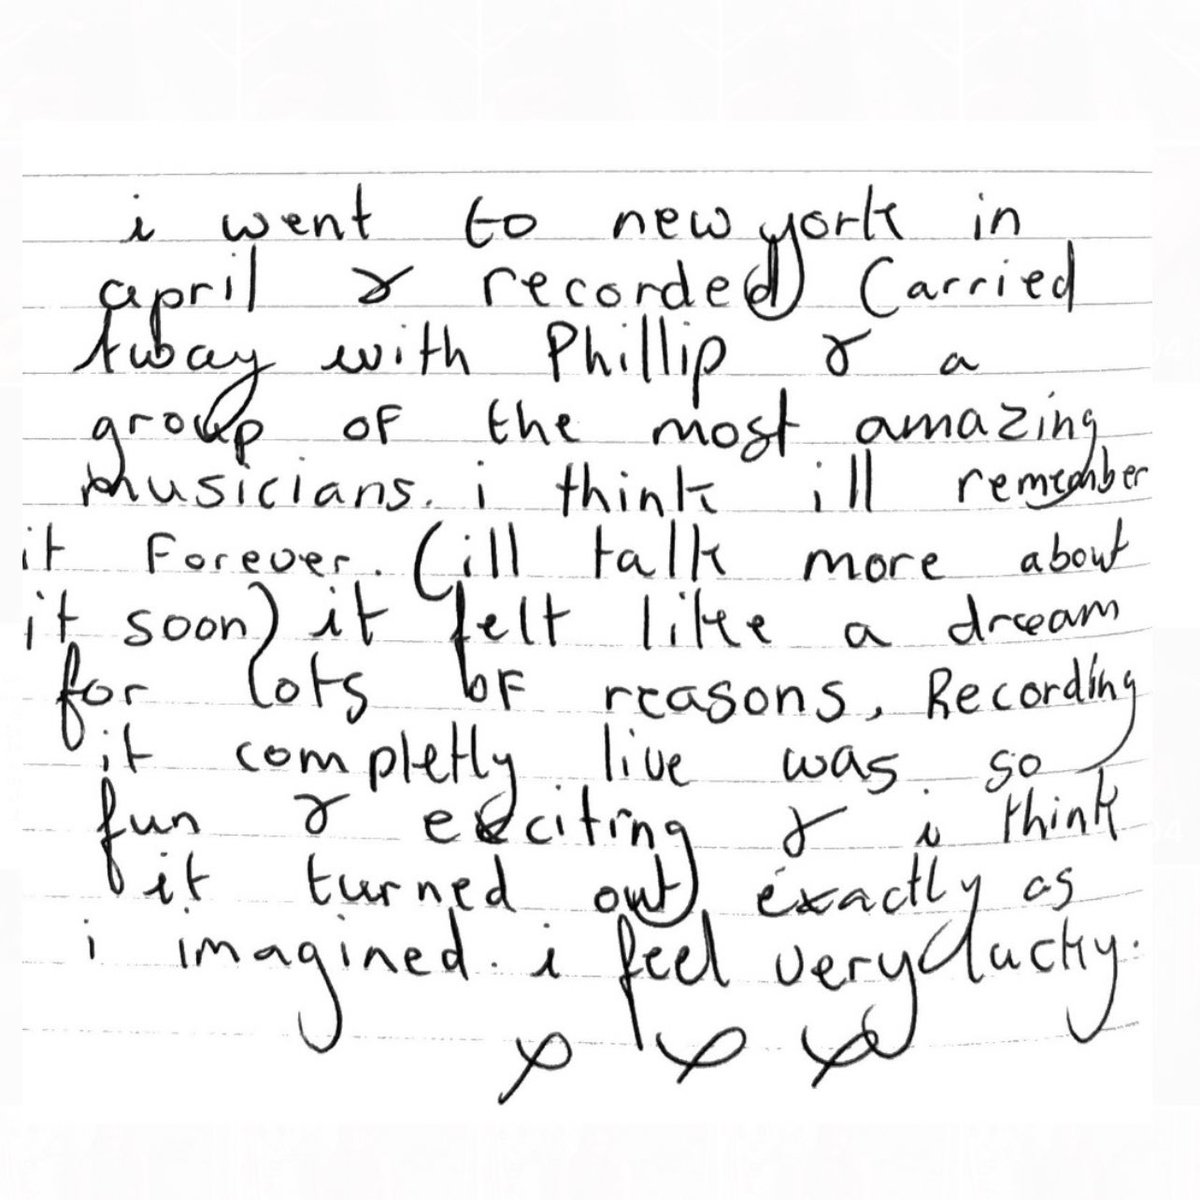 i went to new york in
april & recorded Carried
away with Phillip & a
group of the most amazing
musicians. i think ill remember
it forever. (ill talk more about
it soon) it felt like a dream
for lots of reasons, Recording
it completly live was so
fun & exciting & i think
it turned out exactly as
i imagined. i feel very lucky.
x x x